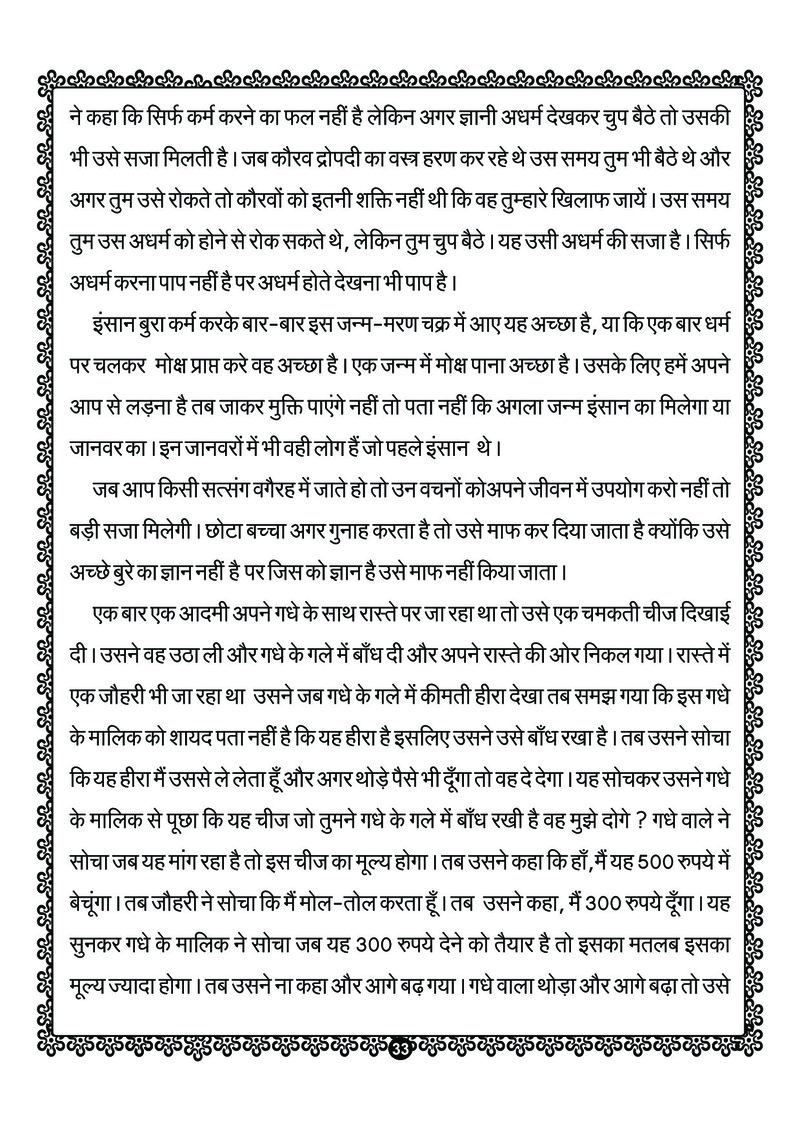 ने कहा कि सिर्फ कर्म करने का फल नहीं है लेकिन अगर ज्ञानी अधर्म देखकर चुप बैठे तो उसकी
भी उसे सजा मिलती है । जब कौरव द्रोपदी का वस्त्र हरण कर रहे थे उस समय तुम भी बैठे थे और
अगर तुम उसे रोकते तो कौरवों को इतनी शक्ति नहीं थी कि वह तुम्हारे खिलाफ जायें । उस समय
तुम उस अधर्म को होने से रोक सकते थे, लेकिन तुम चुप बैठे । यह उसी अधर्म की सजा है । सिर्फ
अधर्म करना पाप नहीं है पर अधर्म होते देखना भी पाप है ।
इंसान बुरा कर्म करके बार-बार इस जन्म-मरण चक्र में आए यह अच्छा है, या कि एक बार धर्म
पर चलकर मोक्ष प्राप्त करे वह अच्छा है । एक जन्म में मोक्ष पाना अच्छा है । उसके लिए हमें अपने
आप से लड़ना है तब जाकर मुक्ति पाएंगे नहीं तो पता नहीं कि अगला जन्म इंसान का मिलेगा या
जानवर का । इन जानवरों में भी वही लोग हैं जो पहले इंसान थे ।
जब आप किसी सत्संग वगैरह में जाते हो तो उन वचनों कोअपने जीवन में उपयोग करो नहीं तो
बड़ी सजा मिलेगी । छोटा बच्चा अगर गुनाह करता है तो उसे माफ कर दिया जाता है क्योंकि उसे
अच्छे बुरे का ज्ञान नहीं है पर जिस को ज्ञान है उसे माफ नहीं किया जाता ।
एक बार एक आदमी अपने गधे के साथ रास्ते पर जा रहा था तो उसे एक चमकती चीज दिखाई
दी । उसने वह उठा ली और गधे के गले में बाँध दी और अपने रास्ते की ओर निकल गया । रास्ते में
एक जौहरी भी जा रहा था उसने जब गधे के गले में कीमती हीरा देखा तब समझ गया कि इस गधे
के मालिक को शायद पता नहीं है कि यह हीरा है इसलिए उसने उसे बाँध रखा है । तब उसने सोचा
कि यह हीरा मैं उससे ले लेता हूँ और अगर थोड़े पैसे भी दूँगा तो वह दे देगा । यह सोचकर उसने गधे
के मालिक से पूछा कि यह चीज जो तुमने गधे के गले में बाँध रखी है वह मुझे दोगे ? गधे वाले ने
सोचा जब यह मांग रहा है तो इस चीज का मूल्य होगा । तब उसने कहा कि हाँ,मैं यह 500 रुपये में
बेचूंगा । तब जौहरी ने सोचा कि मैं मोल-तोल करता हूँ । तब उसने कहा, मैं 300 रुपये दूँगा । यह
सुनकर गधे के मालिक ने सोचा जब यह 300 रुपये देने को तैयार है तो इसका मतलब इसका
मूल्य ज्यादा होगा । तब उसने ना कहा और आगे बढ़ गया । गधे वाला थोड़ा और आगे बढ़ा तो उसे
33